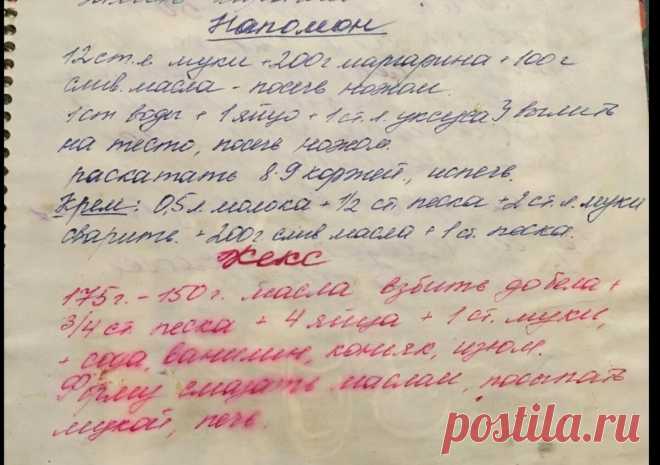 Наполеон
12 ст.л. муки + 200 г маргарина + 100 г
слив. масла - посечь ножом.
1 ст воды + 1 яйцо + 1 ст. л. уксуса З вылить
на тесто, посечь ножом.
раскатать 8-9 коржей., испечь.
Крем: 0,5 л. молока + 1/2 ст. песка + 2 ст. л. муки
сварить. + 200 г слив масла + 1 ст. песка.
Кекс
175 г. - 150 г. масла взбить добела +
3/4 ст. песка + 4 яйца + 1 ст. муки,
+ сода, ванилин, коньяк, изюм.
Форму смазать маслом, посыпать
мукой, печь.
postila.ru